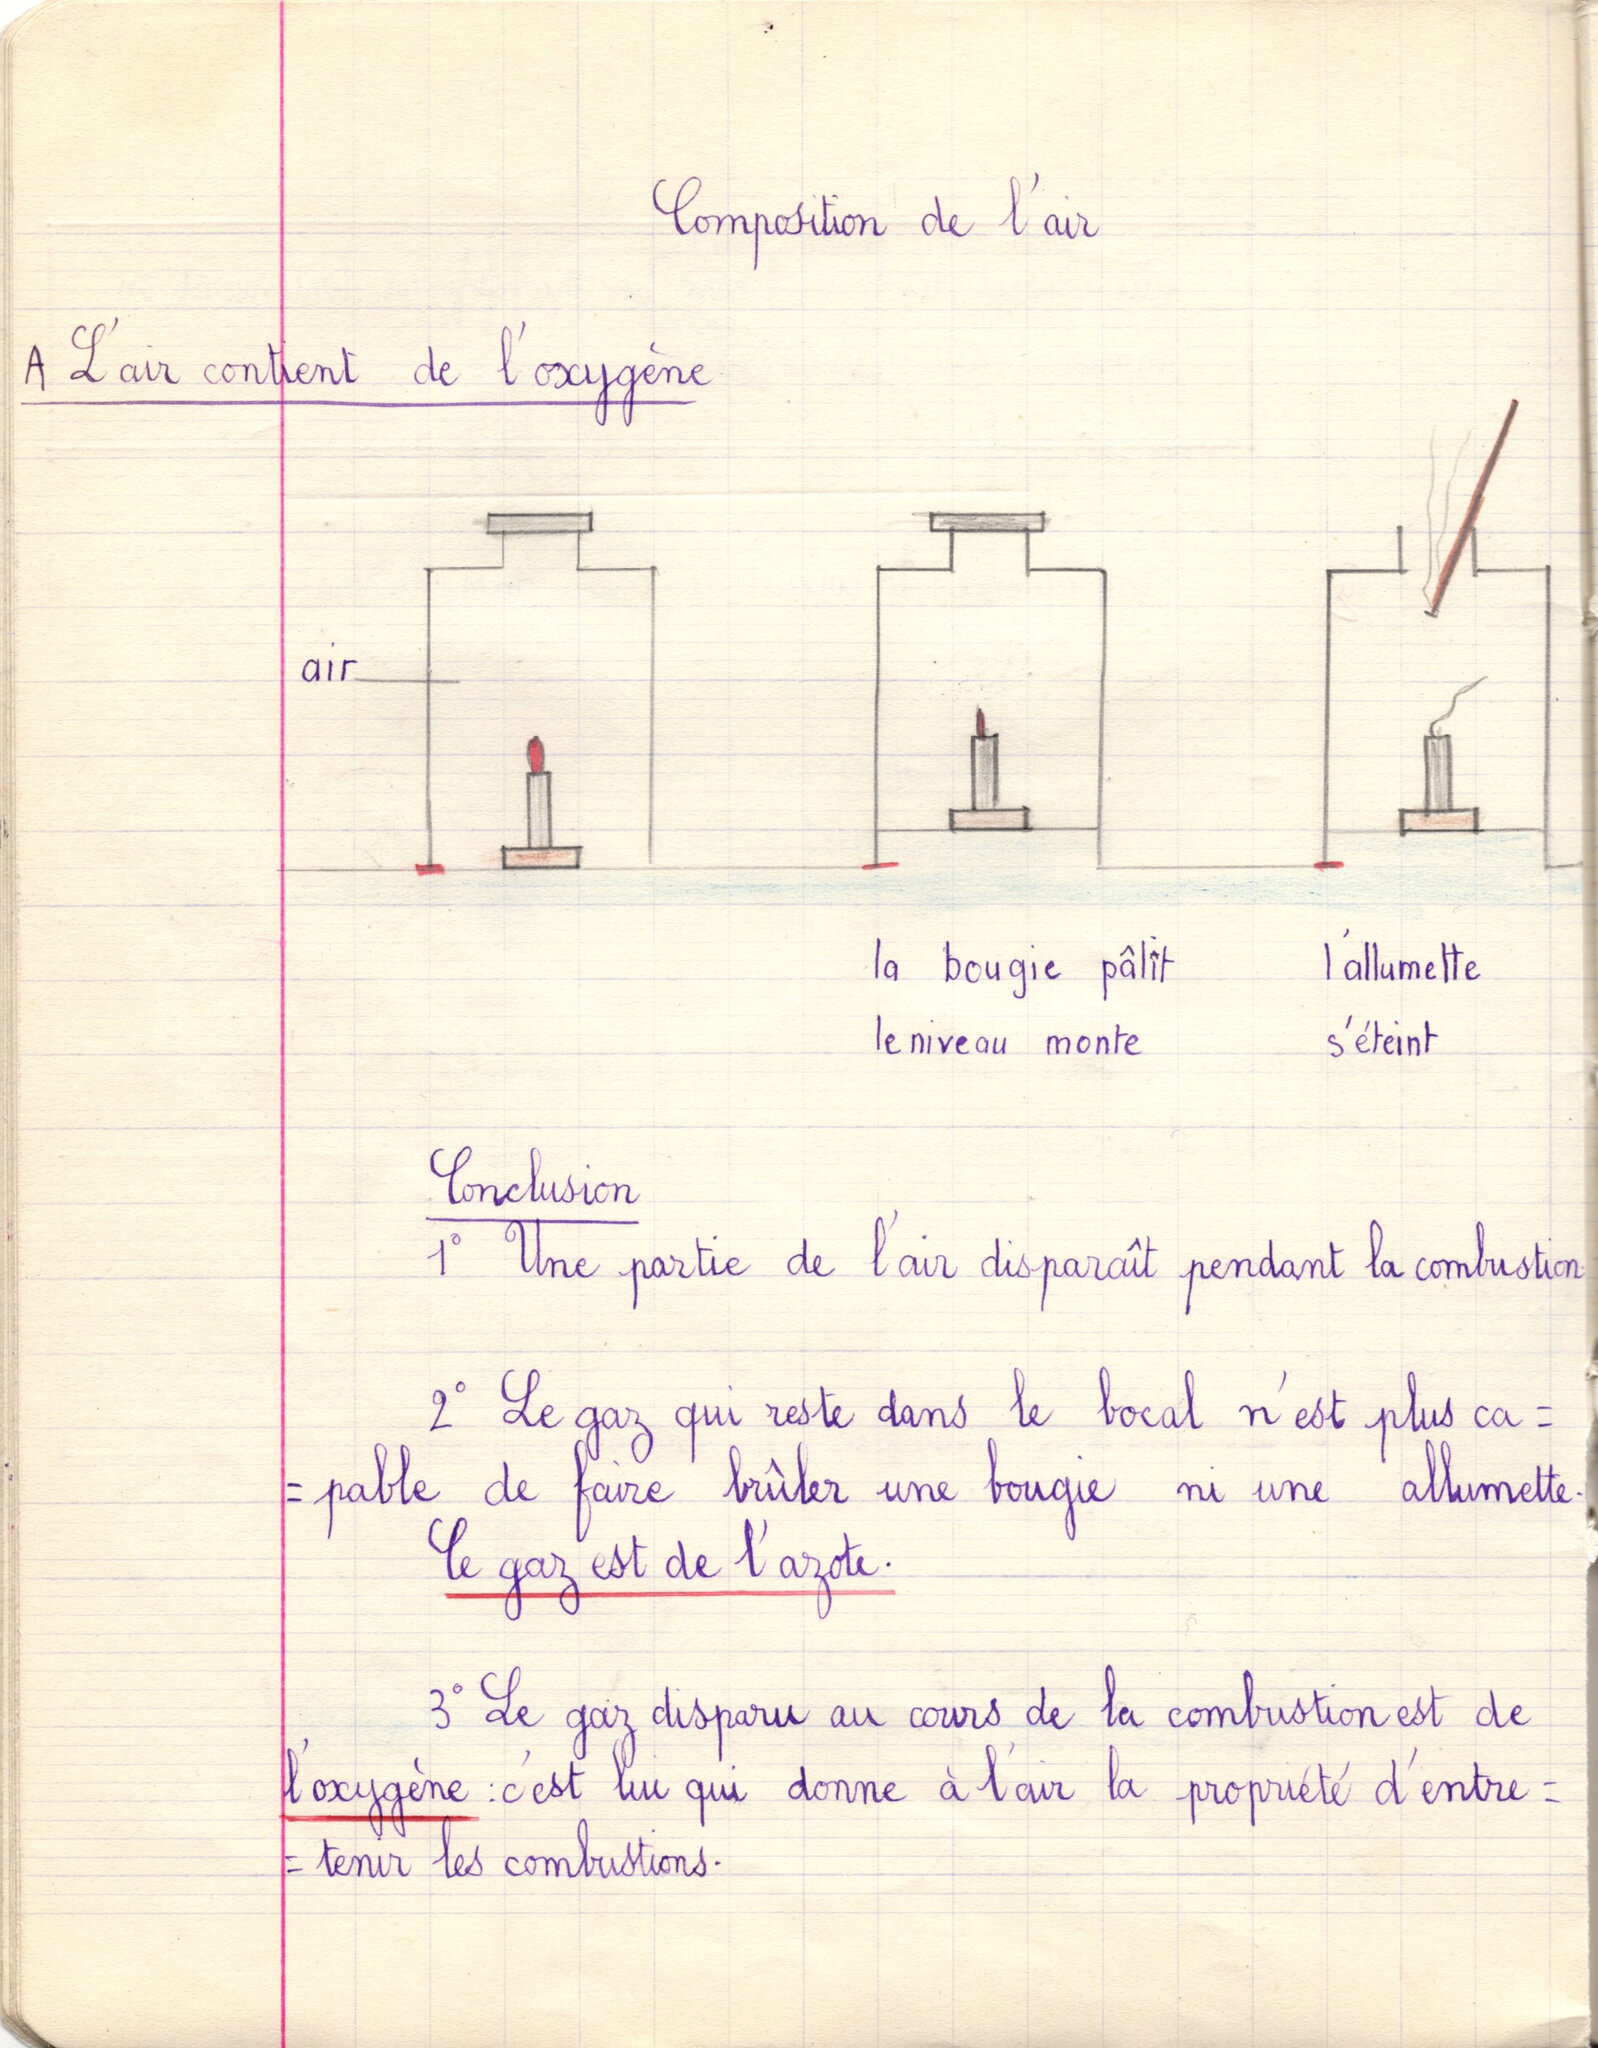 Composition de l'air
A L'air contient de l'oxygène
air
la bougie pâlît
le niveau monte
l'allumette
s'éteint
Conclusion
1° Une partie de l'air disparaît pendant la combustion
2° Le gaz qui reste dans le bocal n'est plus ca =
= pable de faire brûler une bougie ni une allumette.
Ce gaz est de l'azote.
3° Le gaz disparu au cours de la combustion est de
l'oxygène : c'est lui qui donne à l'air la propriété d'entre =
= tenir les combustions.